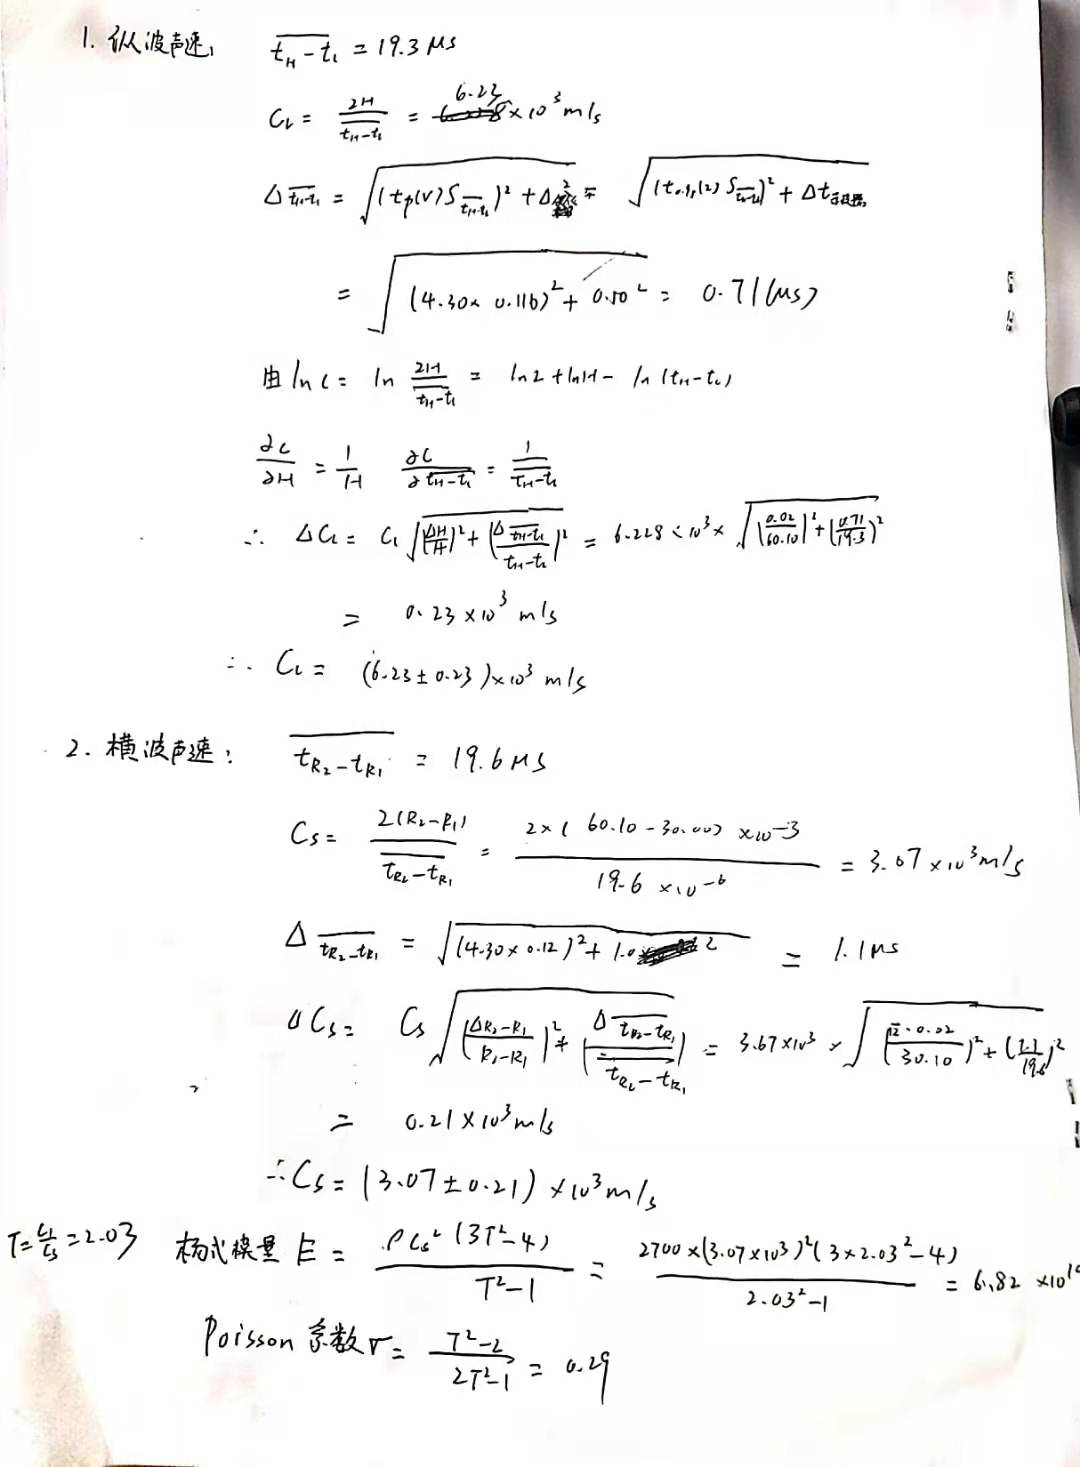 1. 纵波声速: \overline{t_H-t_L} = 19.3 μs
C_L = \frac{2H}{\overline{t_H-t_L}} = 6.23 × 10^3 m/s
Δ\overline{t_H-t_L} = \sqrt{(t_p(v) S_{\overline{t_H-t_L}})^2 + Δ^2} = \sqrt{(t_{0.95}(2) S_{\overline{t_H-t_L}})^2 + Δt}
= \sqrt{(4.30 × 0.116)^2 + 0.50^2} = 0.71 (μs)
由 ln c = ln \frac{2H}{\overline{t_H-t_L}} = ln2 + lnH - ln(t_H-t_L)
\frac{∂C}{∂H} = \frac{1}{H} \frac{∂C}{∂\overline{t_H-t_L}} = \frac{1}{\overline{t_H-t_L}}
∴ ΔC_L = C_L \sqrt{(\frac{ΔH}{H})^2 + (\frac{Δ\overline{t_H-t_L}}{\overline{t_H-t_L}})^2} = 6.228 × 10^3 × \sqrt{(\frac{0.02}{60.10})^2 + (\frac{0.71}{19.3})^2}
= 0.23 × 10^3 m/s
∴ C_L = (6.23 ± 0.23) × 10^3 m/s
2. 横波声速: \overline{t_{R_2}-t_{R_1}} = 19.6 μs
C_S = \frac{2(R_2-R_1)}{\overline{t_{R_2}-t_{R_1}}} = \frac{2×(60.10-30.00) ×10^{-3}}{19.6 ×10^{-6}} = 3.07 × 10^3 m/s
Δ\overline{t_{R_2}-t_{R_1}} = \sqrt{(4.30 × 0.12)^2 + 1.0^2} = 1.1 μs
ΔC_S = C_S \sqrt{(\frac{ΔR_2-R_1}{R_2-R_1})^2 + (\frac{Δ\overline{t_{R_2}-t_{R_1}}}{\overline{t_{R_2}-t_{R_1}}})} = 3.67 × 10^3 × \sqrt{(\frac{\sqrt{2}·0.02}{30.10})^2 + (\frac{1.1}{19.6})^2}
= 0.21 × 10^3 m/s
∴ C_S = (3.07 ± 0.21) × 10^3 m/s
T = \frac{C_L}{C_S} = 2.03 杨氏模量 E = \frac{ρC_S^2(3T^2-4)}{T^2-1} = \frac{2700×(3.07×10^3)^2(3×2.03^2-4)}{2.03^2-1} = 6.82 ×10
Poisson 系数 σ = \frac{T^2-2}{2T^2-1} = 0.29